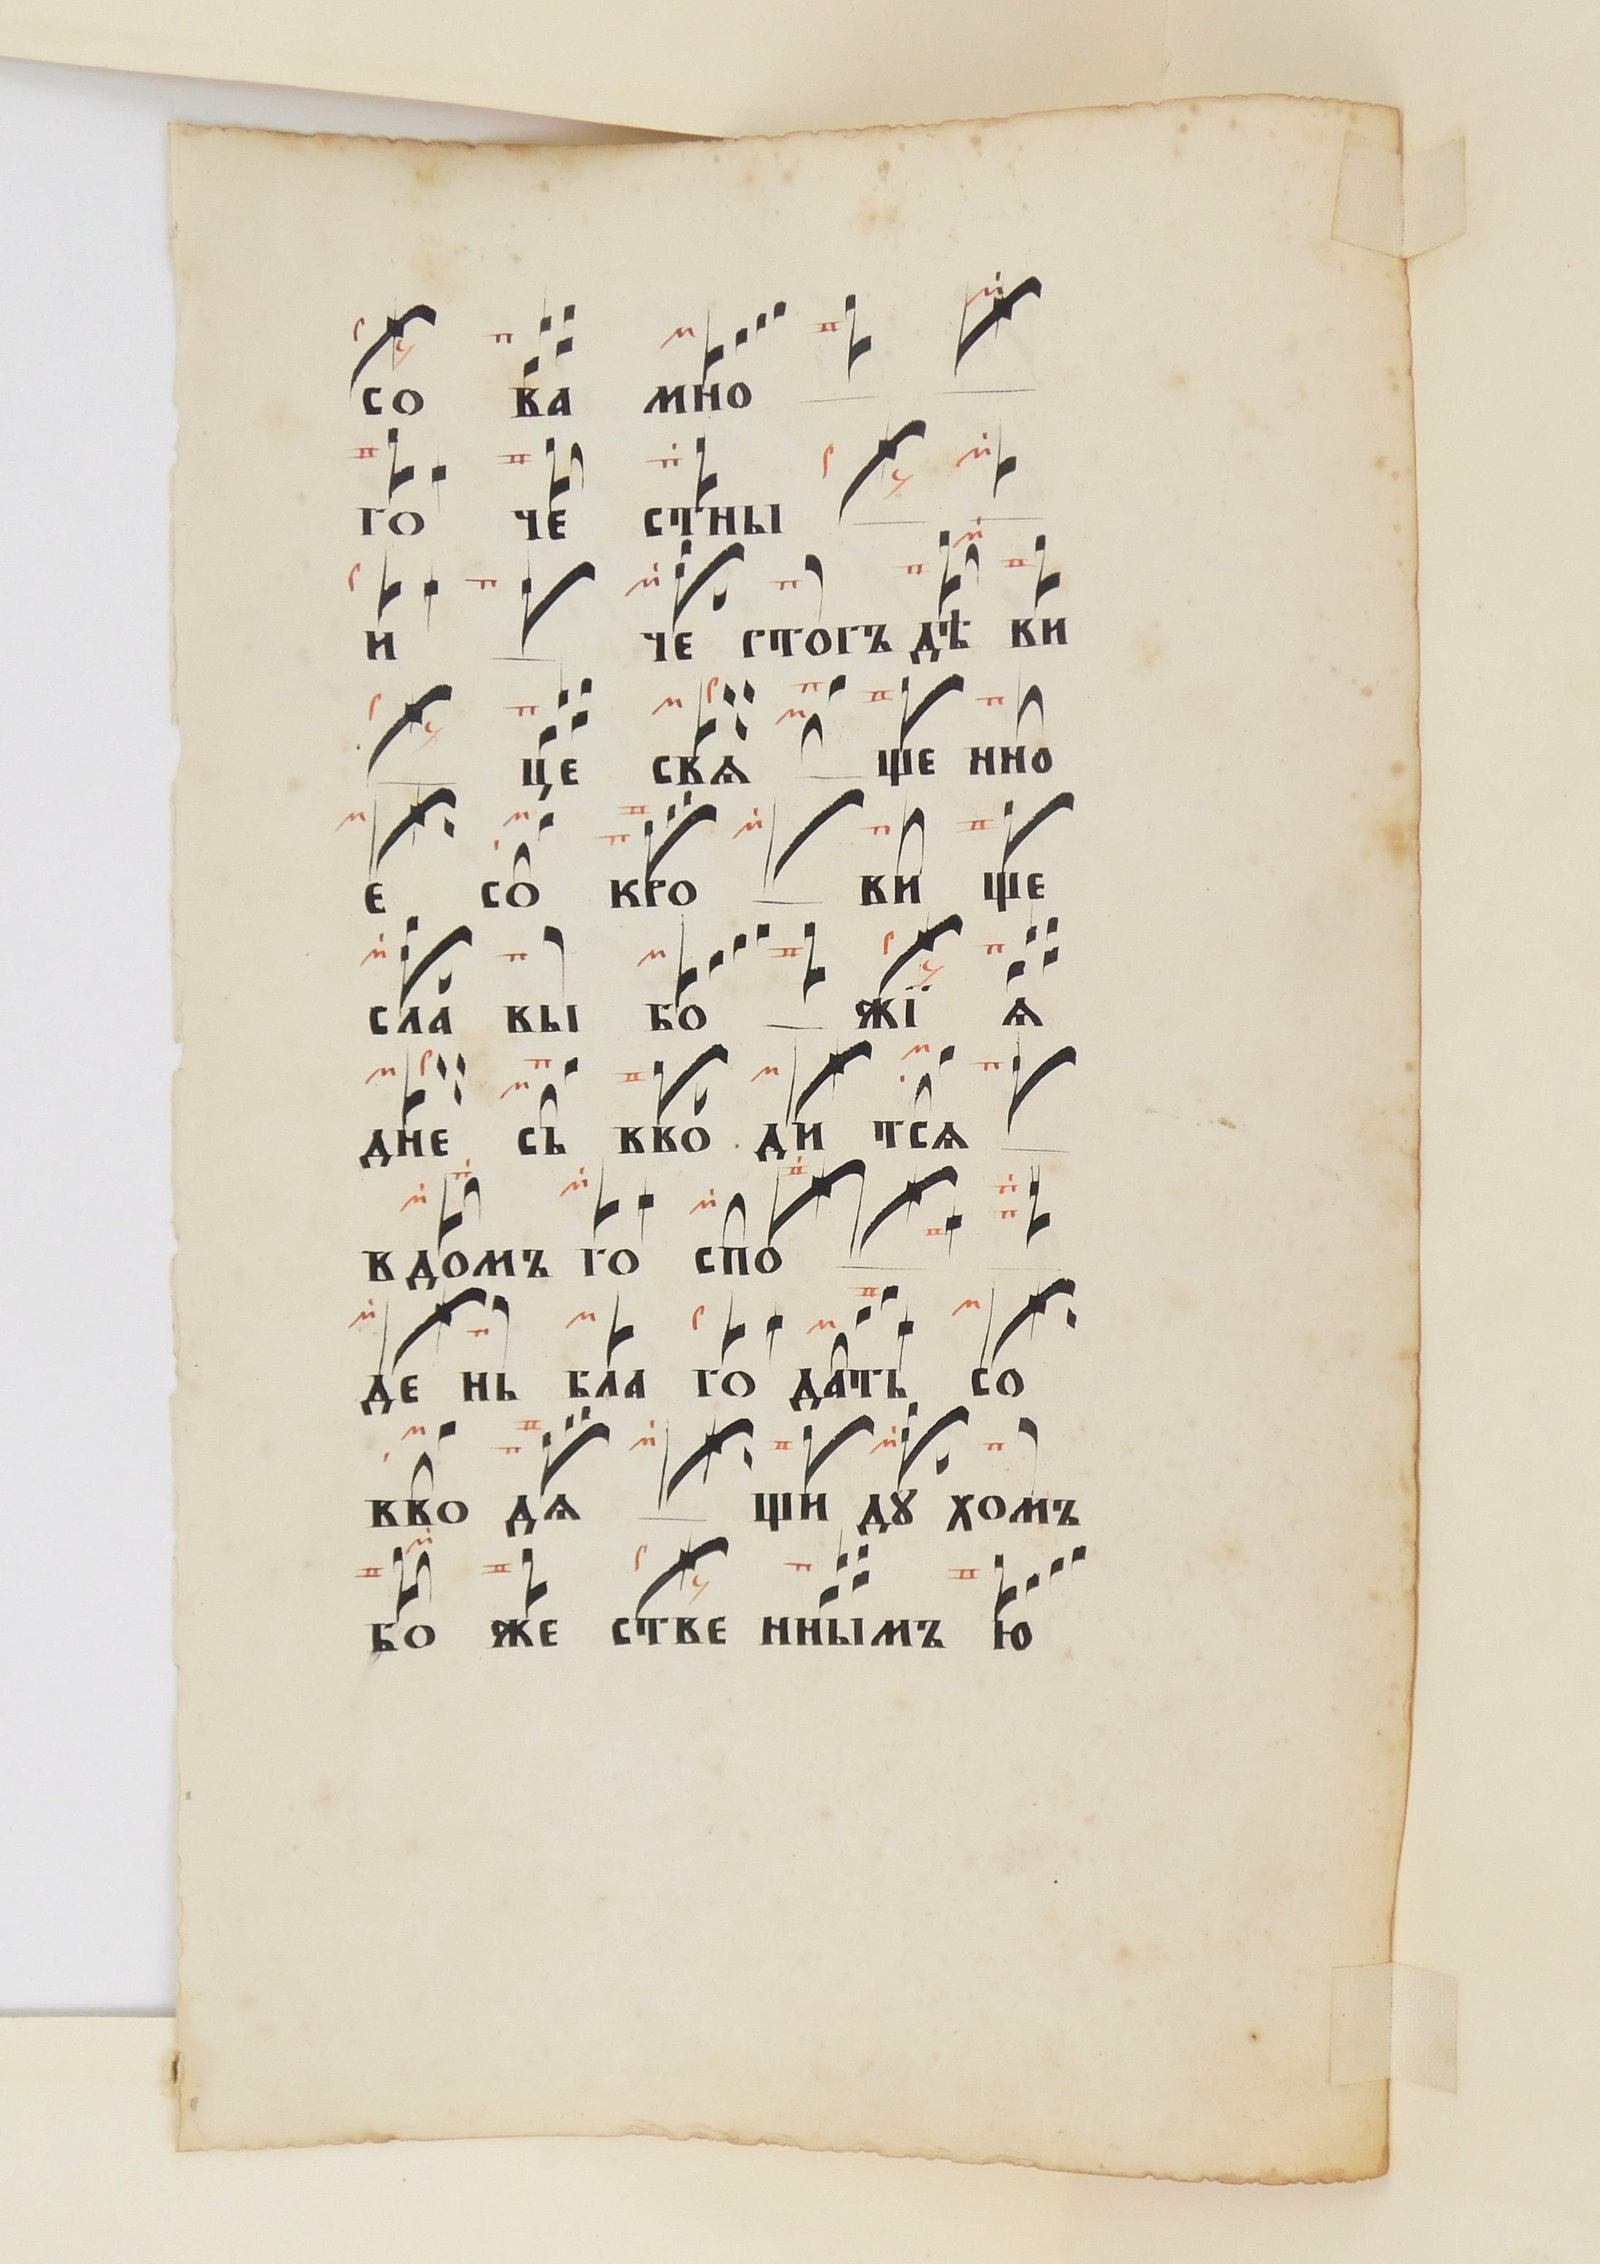 со ва мно
го че стны
и че стогъ дѣ ви
це свѧ ще нно
е со кро ви ще
сла вы бо жї ѧ
дне сь вво ди тсѧ
в домъ го спо
де нь бла го дать со
вво дѧ щи дꙋ хомъ
бо же стве ннымъ ю